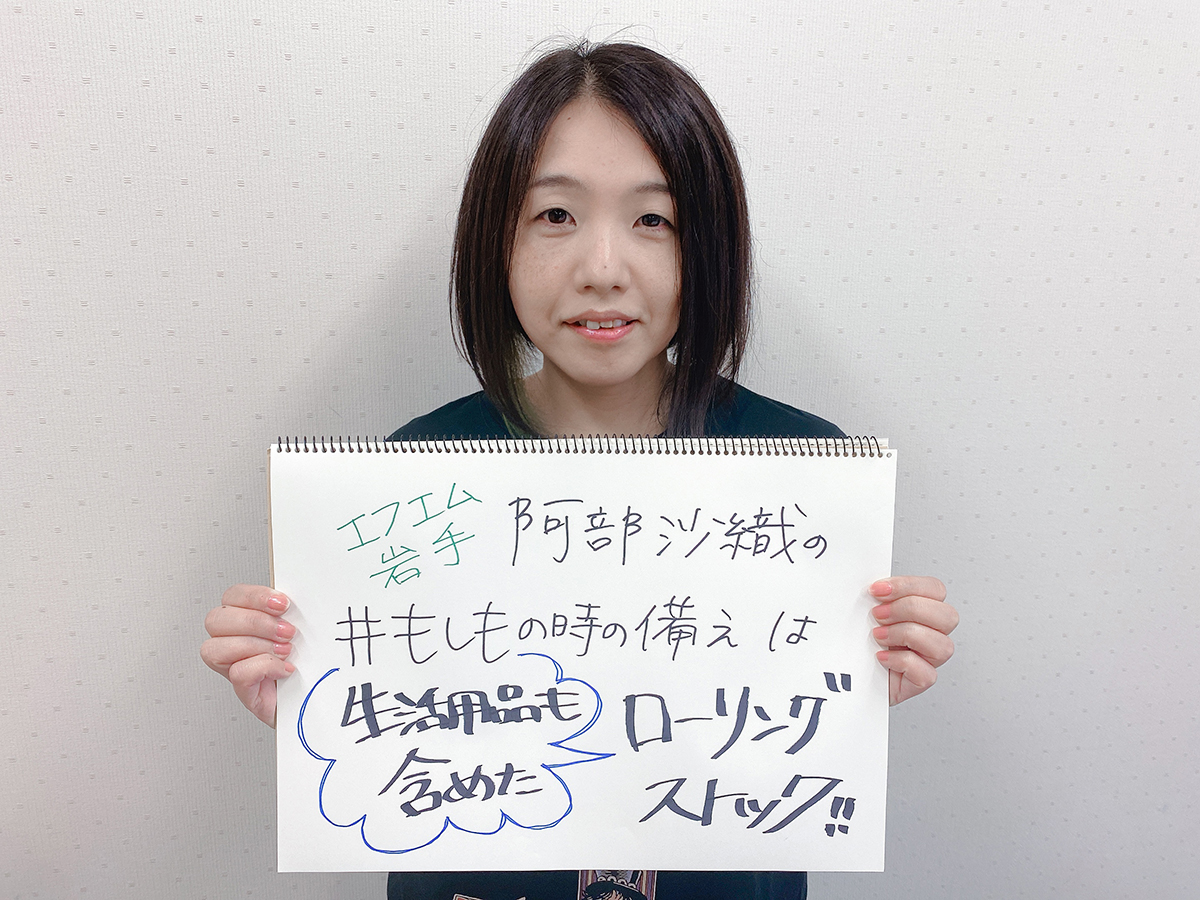 エフエム
岩手
阿部沙織の
#もしもの時の備えは
生活用品も
含めた
ローリング
ストック!!